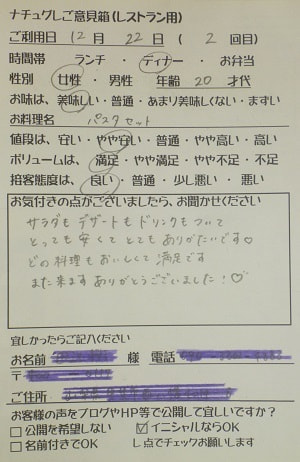 ナチュグしご意見箱(レストラン用)
ご利用日 12月 22日 ( 2 回目)
時間帯 ランチ・ディナー・お弁当
性別 女性・男性 年齢 20 才代
お味は、美味しい・普通・あまり美味しくない・まずい
お料理名 パスタセット
値段は、安い・やや安い・普通・やや高い・高い
ボリュームは、満足・やや満足・やや不足・不足
接客態度は、良い・普通・少し悪い・悪い
お気付きの点がございましたら、お聞かせください
サラダも デザートも ドリンクも ついて
とっても 安くて とても ありがたいです♡
どの料理も おいしくて 満足です
また来ます ありがとうございました!♡
宜しかったらご記入ください
お名前 様 電話
〒
ご住所
お客様の声をブログやHP等で公開して宜しいですか?
□公開を希望しない ☑イニシャルならOK
□名前付きでOK レ点でチェックお願いします